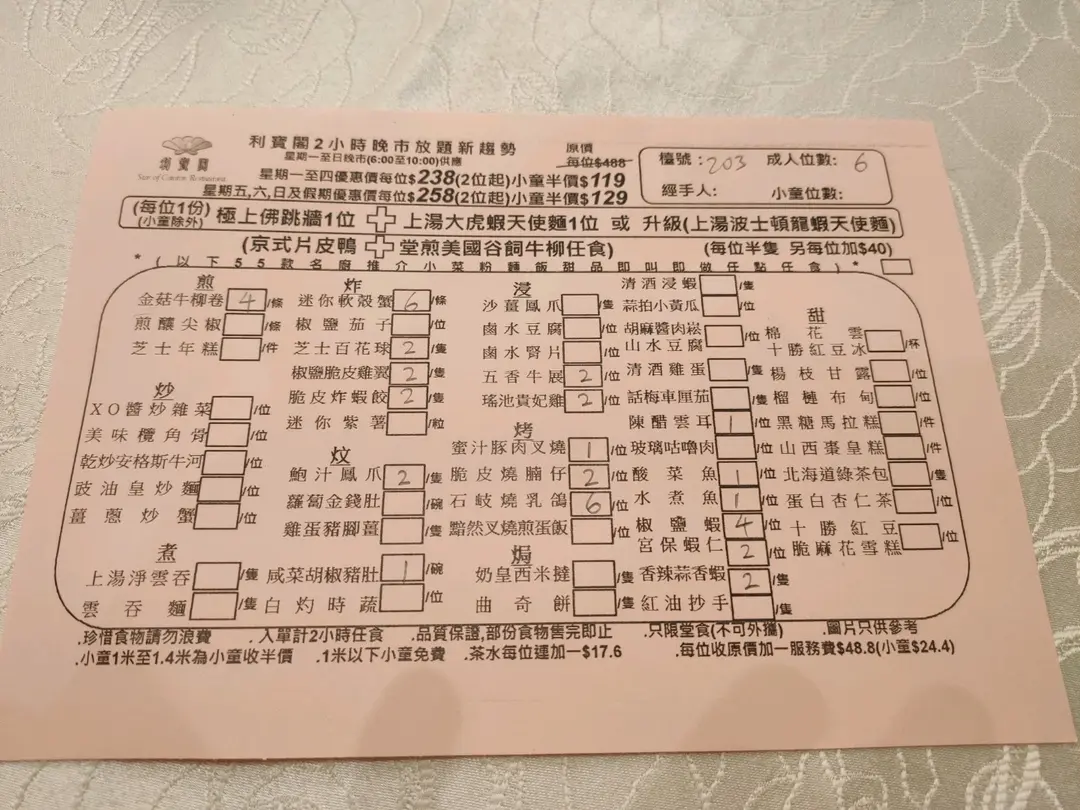 利寶閣2小時晚市放題新趨勢
星期一至日晚市(6:00至10:00)供應
星期一至四優惠價每位$238(2位起)小童半價$119
星期五,六,日及假期優惠價每位$258(2位起)小童半價$129
原價
每位$488
檯號:203 成人位數:6
經手人: 小童位數:
Star of Canton Restaurant
(每位1份)
(小童除外)
極上佛跳牆1位 + 上湯大虎蝦天使麵1位 或 升級(上湯波士頓龍蝦天使麵)
(京式片皮鴨 + 堂煎美國谷飼牛柳任食) (每位半隻 另每位加$40)
*(以下55款名廚推介小菜粉麵飯甜品即叫即做任點任食)*
煎
金菇牛柳卷 4 /條
煎釀尖椒 /條
芝士年糕 /件
炒
XO醬炒雜菜 /位
美味欖角骨 /位
乾炒安格斯牛河 /位
豉油皇炒麵 /位
薑蔥炒蟹 /位
煮
上湯淨雲吞 /隻
雲吞麵 /隻
炸
迷你軟殼蟹 6 /條
椒鹽茄子 /位
芝士百花球 2 /隻
椒鹽脆皮雞翼 2 /隻
脆皮炸蝦餃 2 /隻
迷你紫薯 /粒
炆
鮑汁鳳爪 2 /隻
蘿蔔金錢肚 /碗
雞蛋豬腳薑 /隻
咸菜胡椒豬肚 1 /碗
白灼時蔬 /位
浸
沙薑鳳爪 /隻
鹵水豆腐 /位
鹵水腎片 /位
五香牛展 2 /位
瑤池貴妃雞 2 /位
烤
蜜汁豚肉叉燒 1 /位
脆皮燒腩仔 2 /位
石岐燒乳鴿 6 /位
黯然叉燒煎蛋飯 /位
焗
奶皇西米撻 /隻
曲奇餅 /隻
清酒浸蝦 /隻
蒜拍小黃瓜 /位
胡麻醬肉崧
山水豆腐 /位
清酒雞蛋 /隻
話梅車厘茄 /隻
陳醋雲耳 1 /位
玻璃咕嚕肉 /位
酸菜魚 1 /位
水煮魚 1 /位
椒鹽蝦 4 /位
宮保蝦仁 2 /位
香辣蒜香蝦 2 /隻
紅油抄手 /隻
甜
棉花雲
十勝紅豆冰 /杯
楊枝甘露 /位
榴槤布甸 /位
黑糖馬拉糕 /件
山西棗皇糕 /件
北海道綠茶包 /隻
蛋白杏仁茶 /位
十勝紅豆
脆麻花雪糕 /位
.珍惜食物請勿浪費 .入單計2小時任食 .品質保證,部份食物售完即止 .只限堂食(不可外攜) .圖片只供參考
.小童1米至1.4米為小童收半價 .1米以下小童免費 .茶水每位連加一$17.6 .每位收原價加一服務費$48.8(小童$24.4)